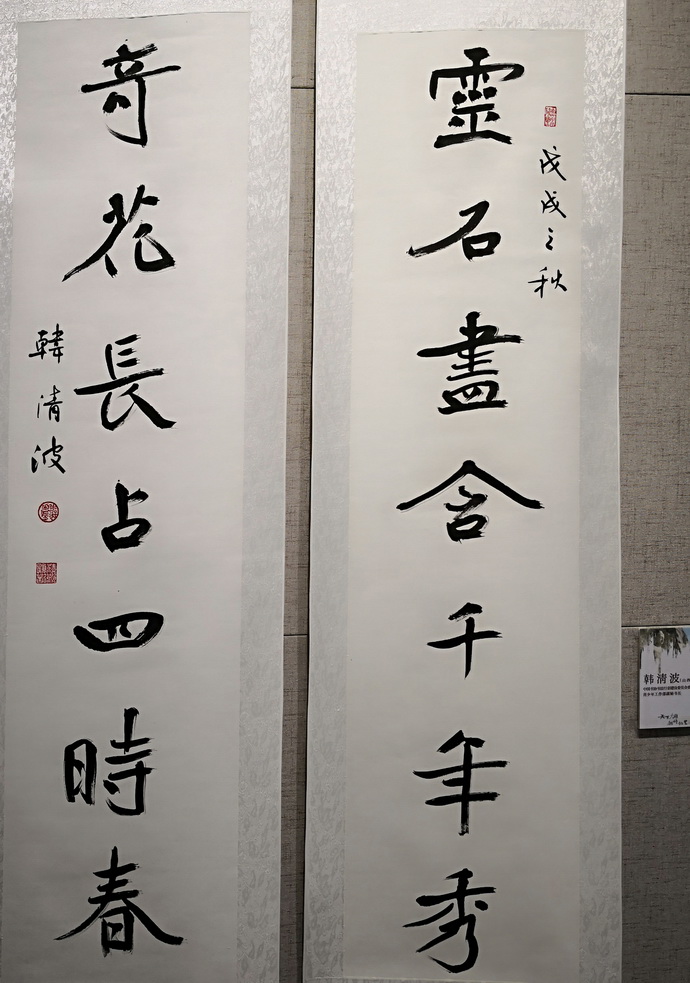 靈石盡含千年秀
戊戌之秋
奇花長占四時春
韓清波
韩清波